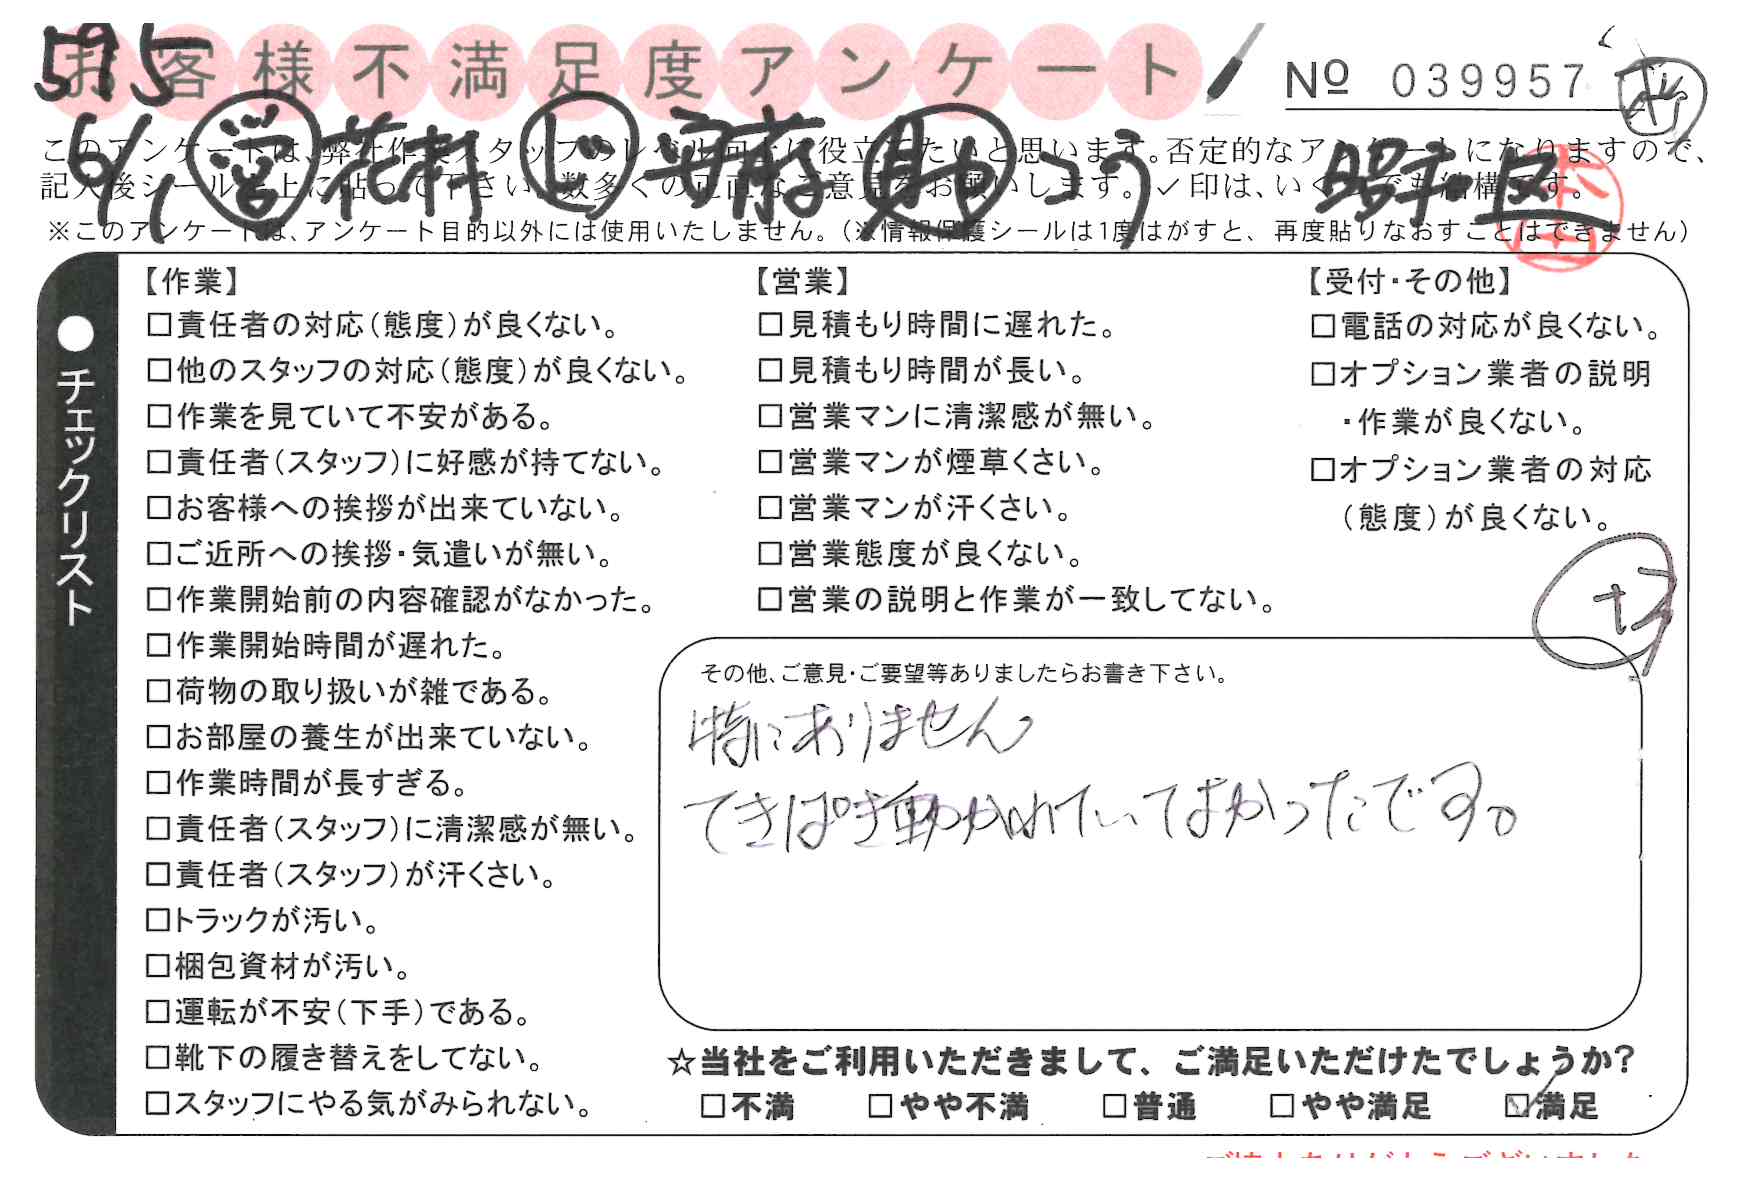 595
お客様不満足度アンケート
Nº 039957
6/1 営 花村 じ 安藤 見 こう 昭和区
このアンケートは、弊社作業スタッフのレベル向上に役立てたいと思います。否定的なアンケートになりますので、
記入後シールを上に貼って下さい。数多くの正直なご意見をお願いします。✓印は、いくつでも結構です。
※このアンケートは、アンケート目的以外には使用いたしません。(※情報保護シールは1度はがすと、再度貼りなおすことはできません)
●チェックリスト
【作業】
□責任者の対応(態度)が良くない。
□他のスタッフの対応(態度)が良くない。
□作業を見ていて不安がある。
□責任者(スタッフ)に好感が持てない。
□お客様への挨拶が出来ていない。
□ご近所への挨拶・気遣いが無い。
□作業開始前の内容確認がなかった。
□作業開始時間が遅れた。
□荷物の取り扱いが雑である。
□お部屋の養生が出来ていない。
□作業時間が長すぎる。
□責任者(スタッフ)に清潔感が無い。
□責任者(スタッフ)が汗くさい。
□トラックが汚い。
□梱包資材が汚い。
□運転が不安(下手)である。
□靴下の履き替えをしてない。
□スタッフにやる気がみられない。
【営業】
□見積もり時間に遅れた。
□見積もり時間が長い。
□営業マンに清潔感が無い。
□営業マンが煙草くさい。
□営業マンが汗くさい。
□営業態度が良くない。
□営業の説明と作業が一致してない。
【受付・その他】
□電話の対応が良くない。
□オプション業者の説明
・作業が良くない。
□オプション業者の対応
(態度)が良くない。
その他、ご意見・ご要望等ありましたらお書き下さい。
特にありません
てきぱき動かれていてよかったです。
☆当社をご利用いただきまして、ご満足いただけたでしょうか?
□不満 □やや不満 □普通 □やや満足 ☑満足